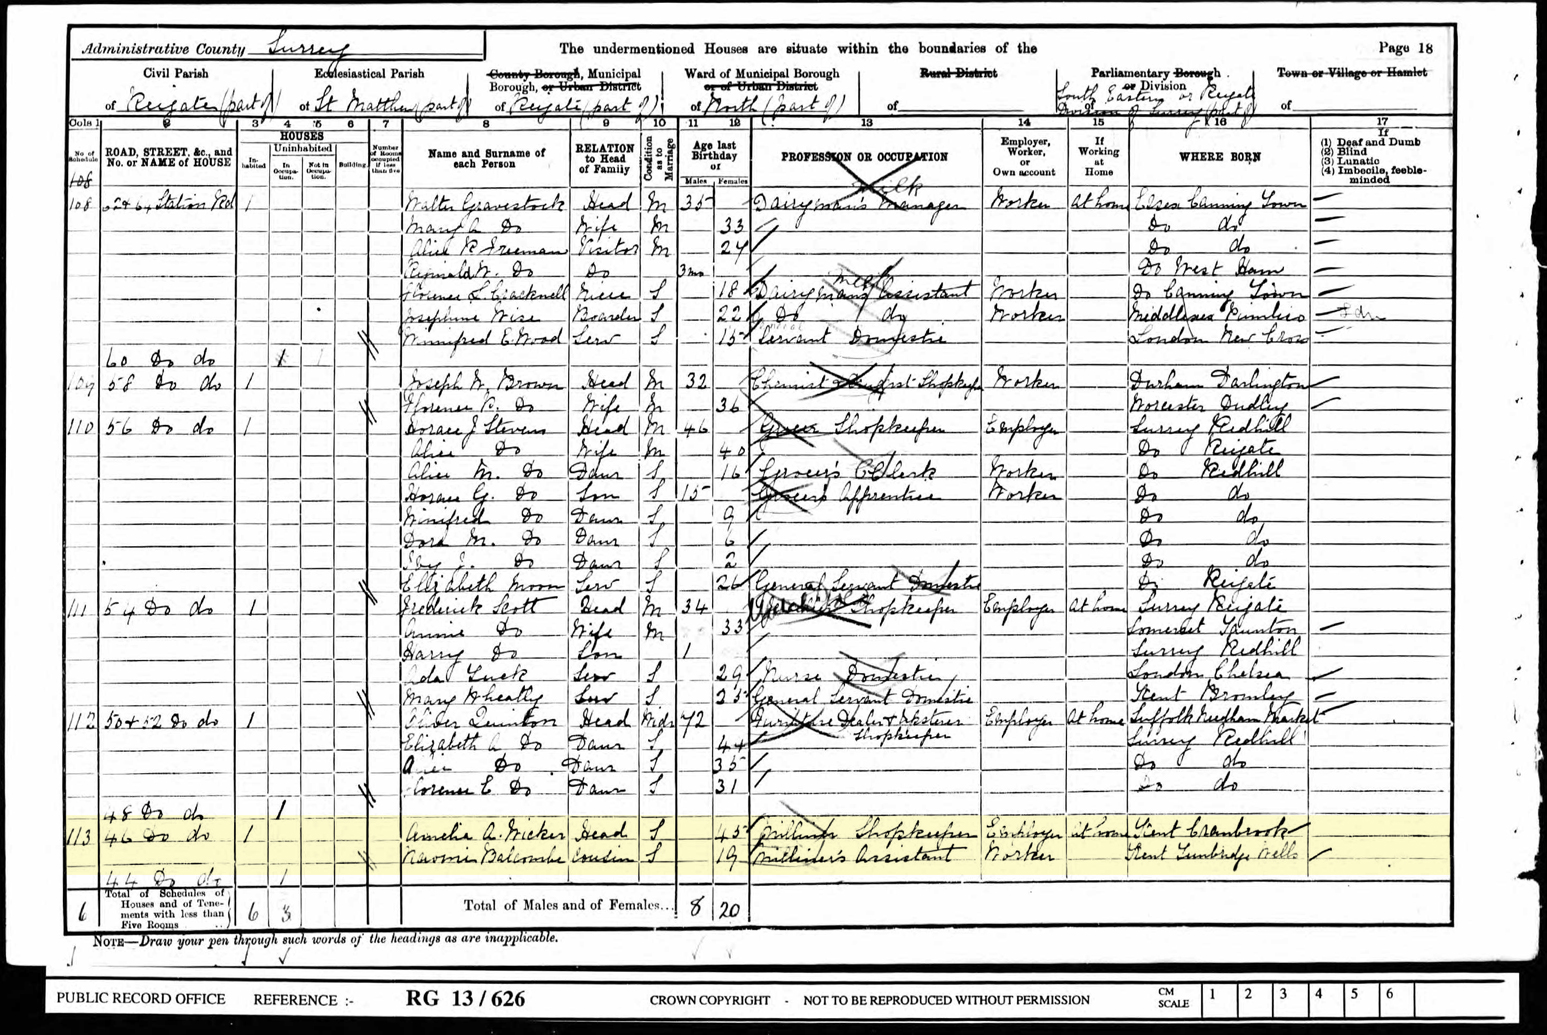 Administrative County Surrey
The undermentioned Houses are situate within the boundaries of the
Page 18
Civil Parish
of Reigate (part of)
Ecclesiastical Parish
of St Matthew (part of)
County Borough, Municipal Borough, or Urban District
of Reigate (part of)
Ward of Municipal Borough or of Urban District
of North (part of)
Rural District
of
Parliamentary Borough or Division
of South Eastern or Reigate Division of Surrey (part of)
Town or Village or Hamlet
of
Cols 1 2 3 4 5 6 7 8 9 10 11 12 13 14 15 16 17
No. of Schedule
ROAD, STREET, &c., and No. or NAME of HOUSE
HOUSES
Inhabited
Uninhabited
In Occupation.
Not in Occupation.
Building.
Number of Rooms occupied if less than five
Name and Surname of each Person
RELATION to Head of Family
Condition as to Marriage
Age last Birthday of
Males Females
PROFESSION OR OCCUPATION
Employer, Worker, or Own account
If Working at Home
WHERE BORN
If
(1) Deaf and Dumb
(2) Blind
(3) Lunatic
(4) Imbecile, feeble-minded
108
108 62 & 64 Station Rd 1 Walter Gravestock Head M 35 Dairyman's Manager Milk Worker At home Essex Canning Town
Mary A. Do Wife M 33 Do do
Alice R. Freeman Visitor M 24 Do do
Reginald W. Do Do 3 mo Do West Ham
Florence L. Cracknell Niece S 18 Dairyman's Assistant Milk Worker Do Canning Town
Josephine Wise Boarder S 22 Do do Worker Middlesex Pimlico
Winnifred E. Wood Serv S 15 Servant Domestic London New Cross
60 Do do 1
109 58 Do do 1 Joseph W. Brown Head M 32 Chemist & Shopkeeper Worker Durham Darlington
Florence Do Wife M 36 Worcester Dudley
110 56 Do do 1 Horace J Stevens Head M 46 Grocer Shopkeeper Employer Surrey Redhill
Alice Do Wife M 40 Do Reigate
Alice M. Do Daur S 16 Grocer's Clerk Worker Do Redhill
Horace G. Do Son S 15 Grocer's Apprentice Worker Do do
Winifred Do Daur S 9 Do do
Dora M. Do Daur S 6 Do do
Ivy J. Do Daur S 2 Do do
Elizabeth Moon Serv S 26 General Servant Domestic Do Reigate
111 54 Do do 1 Frederick Scott Head M 34 Shopkeeper Employer At home Surrey Reigate
Annie Do Wife M 33 Somerset Taunton
Harry Do Son 1 Surrey Redhill
Ada Tuck Serv S 29 Nurse Domestic London Chelsea
Mary Wheatly Serv S 25 General Servant Domestic Kent Bromley
112 50 & 52 Do do 1 Oliver Quinton Head Widr 72 Furniture Dealer & Shopkeeper Employer At home Suffolk Needham Market
Elizabeth A. Do Daur S 44 Surrey Redhill
Alice Do Daur S 35 Do do
Florence E Do Daur S 31 Do do
48 Do do 1
113 46 Do do 1 Amelia A. Wicker Head S 45 Milliner Shopkeeper Employer At home Kent Cranbrook
Naomi Balcombe Cousin S 19 Milliner's Assistant Worker Kent Tunbridge Wells
44 Do do 1
6 Total of Schedules of Houses and of Tenements with less than Five Rooms 6 3 Total of Males and of Females... 8 20
NOTE—Draw your pen through such words of the headings as are inapplicable.
PUBLIC RECORD OFFICE REFERENCE :- RG 13 / 626 CROWN COPYRIGHT - NOT TO BE REPRODUCED WITHOUT PERMISSION CM SCALE 1 2 3 4 5 6